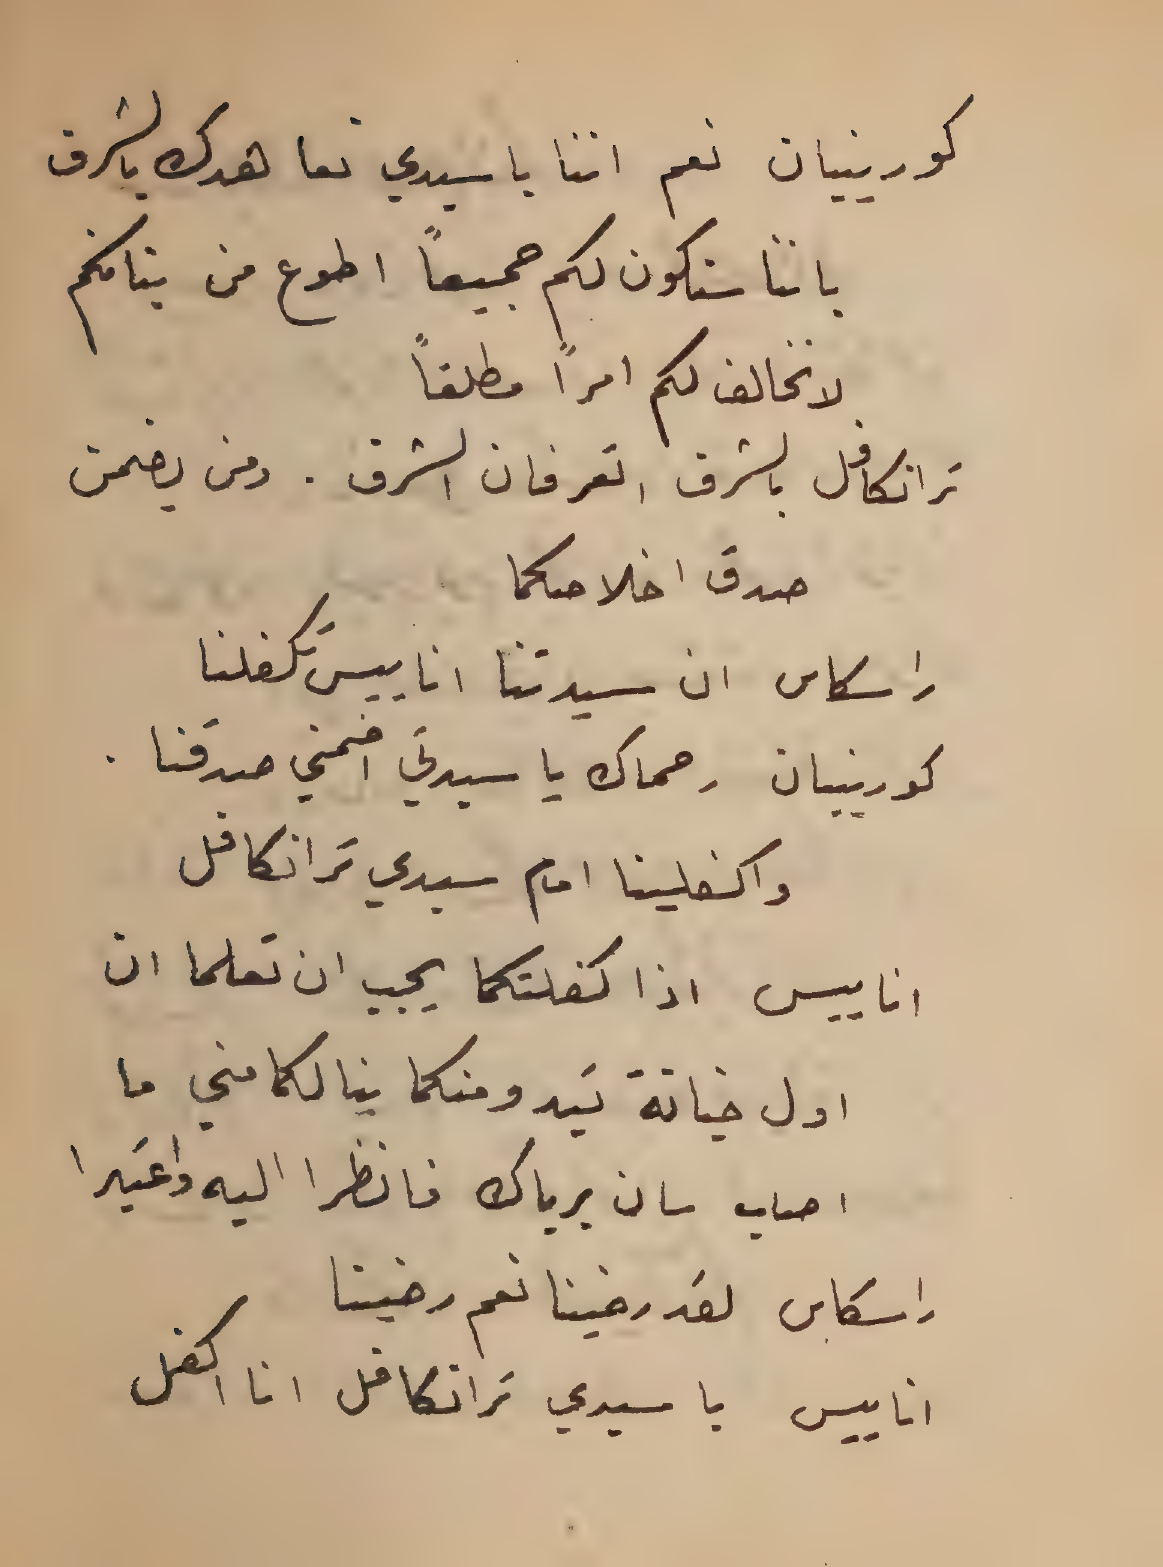 كورينيان نعم اننا يا سيدي نعاهدك بالشرف
باننا سنكون لكم جميعاً اطوع من بنانكم
لا نخالف لكم امراً مطلقاً
ترانكافل بالشرف اتعرفان الشرف . ومن يضمن
صدق اخلاصكما
راسكاس ان سيدتنا اناييس تكفلنا
كورينيان رحماك يا سيدتي اضمني صدقنا .
واكفلينا امام سيدي ترانكافل
اناييس اذا كفلتكما يجب ان تعلما ان
اول خيانة تبدو منكما ينالكما مني ما
اصاب سان برياك فانظرا اليه واعتبرا
راسكاس لقد رضينا نعم رضينا
اناييس يا سيدي ترانكافل انا اكفل